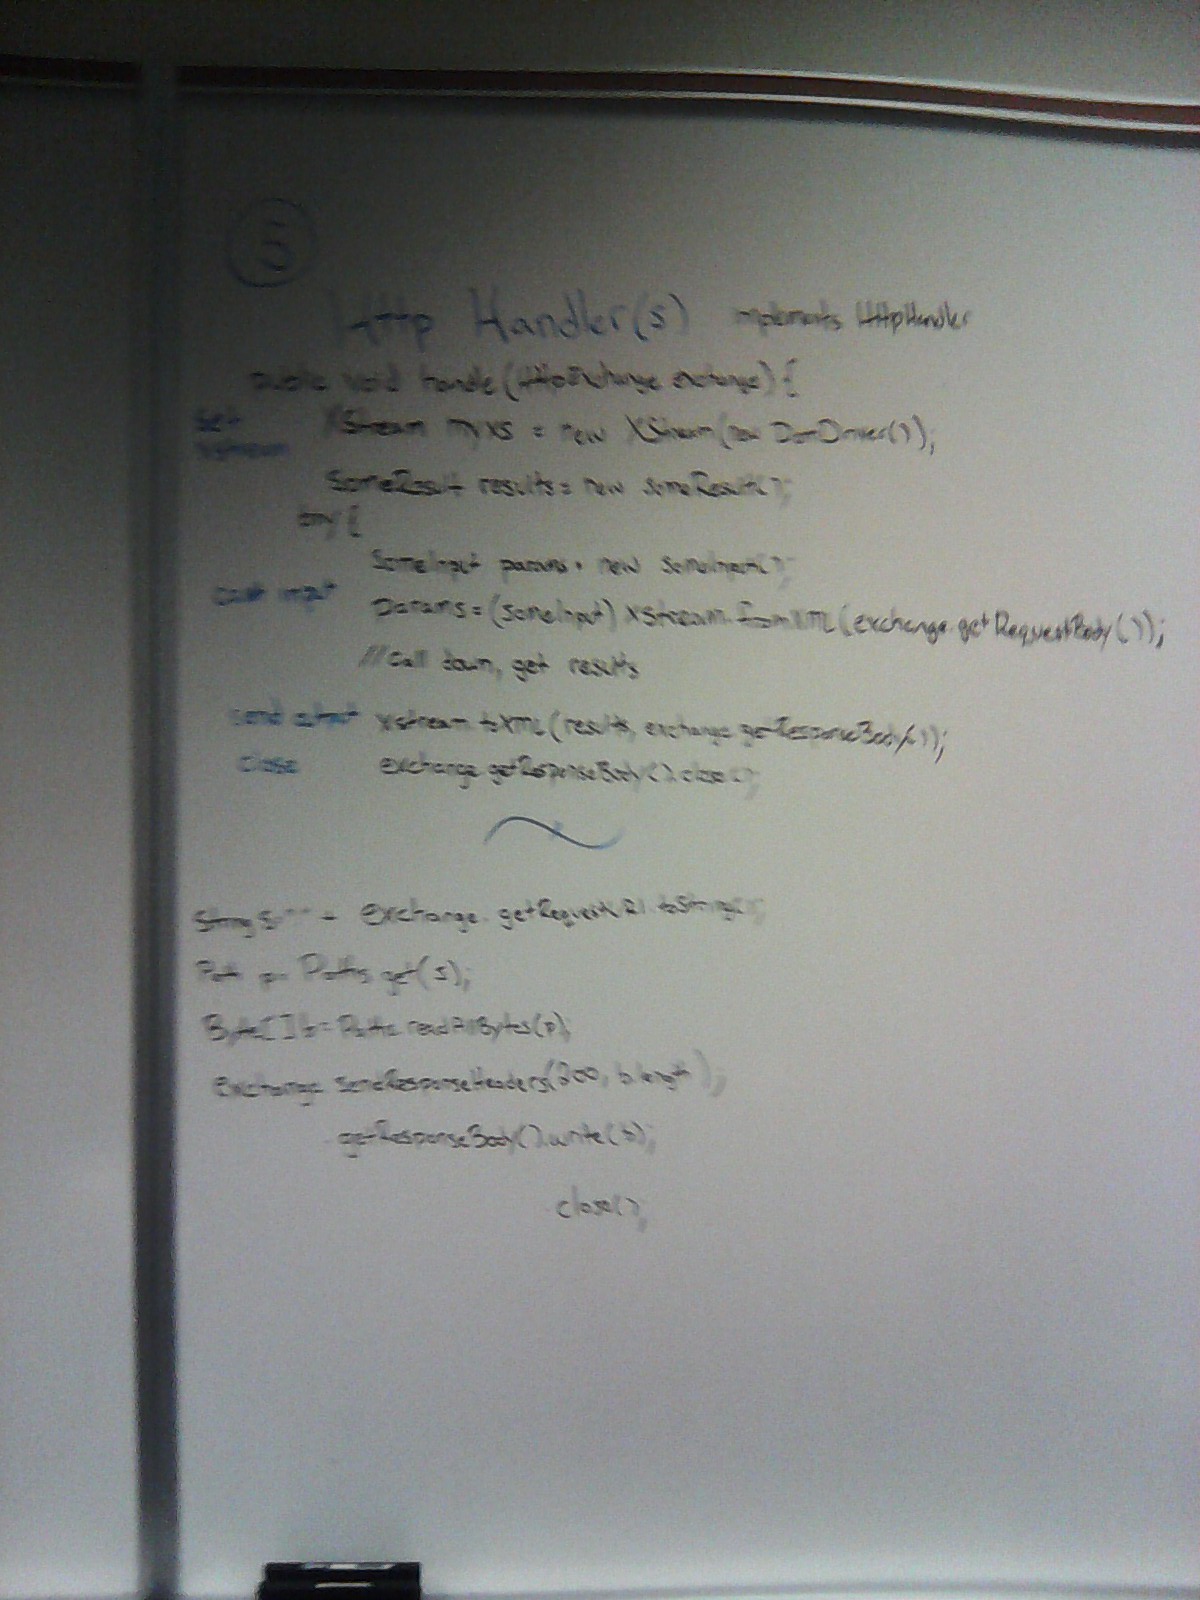 Http Handler(s) implements HttpHandler
public void handle(HttpExchange exchange){
Set XStream myXS = new XStream(new DomDriver());
Xstream
SomeResult results = new someResult();
try {
SomeInput params = new someInput();
cast input params = (someInput) XStream.fromXML(exchange.getRequestBody());
//Call down, get results
send output Xstream.toXML(results, exchange.getResponseBody());
close exchange.getResponseBody().close();
String = Exchange.getRequestURI.toString();
Path p = Paths.get(s);
Byte[] b = readAllBytes(p);
Exchange.sendResponseHeaders(200, b.length);
getResponseBody().write(b);
close();